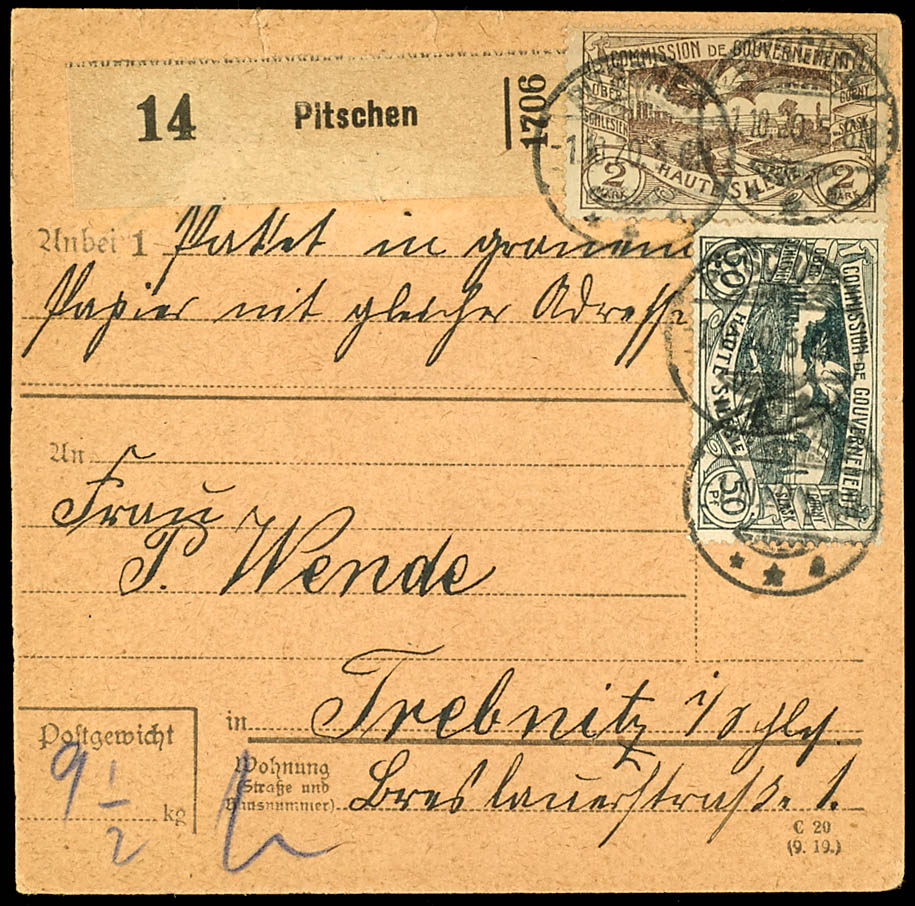 14 Pitschen 1706
COMMISSION DE GOUVERNEMENT
OBER
SCHLESIEN
GORNY
SLASK
HAUTE SILESIE
2 MARK 2 MARK
-1.10.20. 5-6N
Anbei 1 Paket in grauem
Papier mit gleicher Adresse
COMMISSION DE GOUVERNEMENT
OBER
SCHLESIEN
GORNY
SLASK
HAUTE SILESIE
50 50 PF
An
Frau
P. Wende
in Trebnitz i/Schles.
Postgewicht
9 1/2 kg
Wohnung
(Straße und
Hausnummer) Breslauerstraße 1.
C 20
(9. 19.)